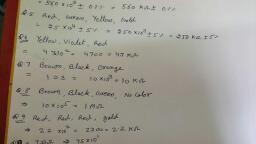 = 560 × 10³ ± 0.1% = 560 KΩ ± 0.1%
Q.5 Red, Green, Yellow, Gold
= 25 × 10⁴ ± 5% = 250 × 10³ ± 5% = 250 KΩ ± 5%
Q.6 Yellow, Violet, Red
= 47 × 10² = 4700 = 47 KΩ
Q.7 Brown, Black, Orange
= 10 × 10³ = 10 KΩ
Q.8 Brown, Black, Green, No Color
= 10 × 10⁵ = 1 MΩ
Q.9 Red, Red, Red, Gold
→ 22 × 10² = 2200 = 2.2 KΩ